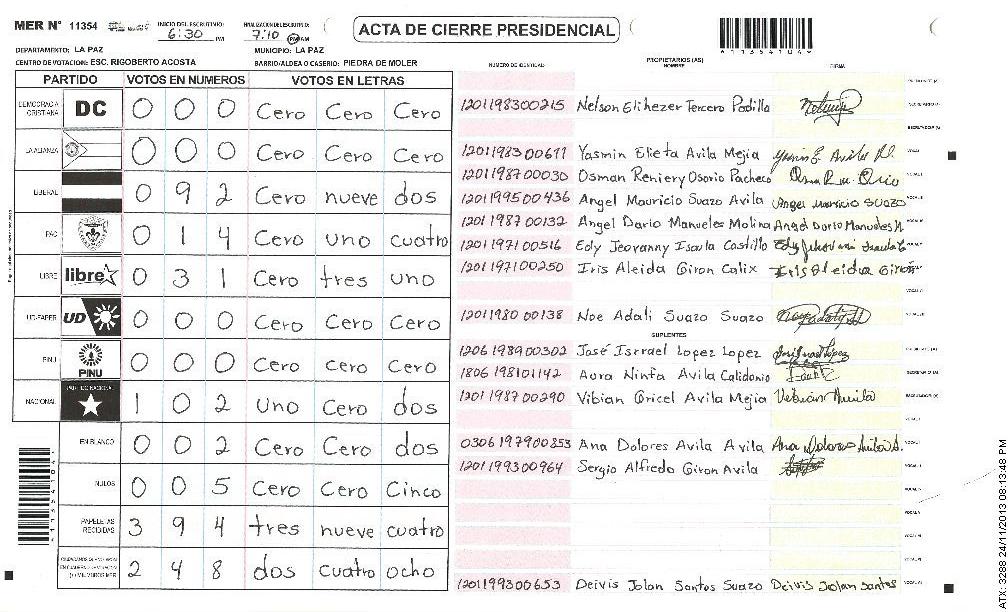 MER N° 11354 INICIO DEL ESCRUTINIO: 6:30 PM FINALIZACION DEL ESCRUTINIO: 7:10 PM AM
ACTA DE CIERRE PRESIDENCIAL
DEPARTAMENTO: LA PAZ MUNICIPIO: LA PAZ
CENTRO DE VOTACION: ESC. RIGOBERTO ACOSTA BARRIO/ALDEA O CASERIO: PIEDRA DE MOLER
NUMERO DE IDENTIDAD PROPIETARIOS (AS) NOMBRE FIRMA
PARTIDO VOTOS EN NUMEROS VOTOS EN LETRAS
DEMOCRACIA CRISTIANA DC 0 0 0 Cero Cero Cero
LA ALIANZA 0 0 0 Cero Cero Cero
LIBERAL 0 9 2 Cero nueve dos
PAC 0 1 4 Cero uno cuatro
LIBRE libre 0 3 1 Cero tres uno
UD-FAPER UD 0 0 0 Cero Cero Cero
PINU PINU 0 0 0 Cero Cero Cero
NACIONAL PARTIDO NACIONAL 1 0 2 uno Cero dos
EN BLANCO 0 0 2 Cero Cero dos
NULOS 0 0 5 Cero Cero Cinco
PAPELETAS RECIBIDAS 3 9 4 tres nueve cuatro
2 4 8 dos cuatro ocho
1201198300215 Nelson Elihezer Tercero Padilla
1201198300611 Yasmin Elieta Avila Mejia
1201198700030 Osman Reniery Osorio Pacheco
1201199500436 Angel Mauricio Suazo Avila Angel Mauricio Suazo
1201198700132 Angel Dario Manueles Molina Angel Dario Manueles M.
1201197100516 Edy Jeovanny Isaula Castillo
1201197100250 Iris Aleida Giron Calix Iris Aleida Giron
1201198000138 Noe Adali Suazo Suazo
SUPLENTES
1206198900302 José Isrrael Lopez Lopez
1806198101142 Aura Ninfa Avila Calidonio
1201198700290 Vibian Gricel Avila Mejia
0306197900853 Ana Dolores Avila Avila Ana Dolores Avila A.
1201199300964 Sergio Alfredo Giron Avila
1201199300653 Deivis Jolan Santos Suazo Deivis Jolan Santos
ATX-3288 24/11/2013 08:13:48 PM